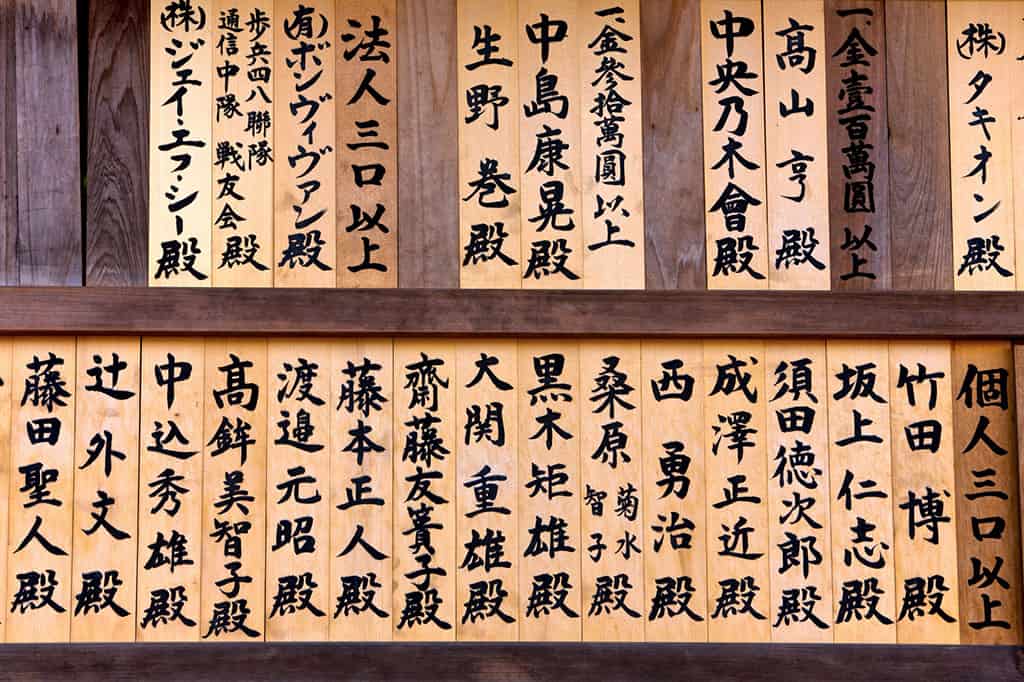 (株)タキオン殿
一、金壹百萬圓以上
髙山亨殿
中央乃木會殿
一、金参拾萬圓以上
中島康晃殿
生野巻殿
法人三口以上
(有)ボンヴィヴァン殿
歩兵四八聯隊
通信中隊戦友会殿
(株)ジェイ・エフ・シー殿
個人三口以上
竹田博殿
坂上仁志殿
須田徳次郎殿
成澤正近殿
西勇治殿
桑原菊水
智子殿
黒木矩雄殿
大関重雄殿
齋藤友簀子殿
藤本正人殿
渡邉元昭殿
髙鉾美智子殿
中込秀雄殿
辻外文殿
藤田聖人殿